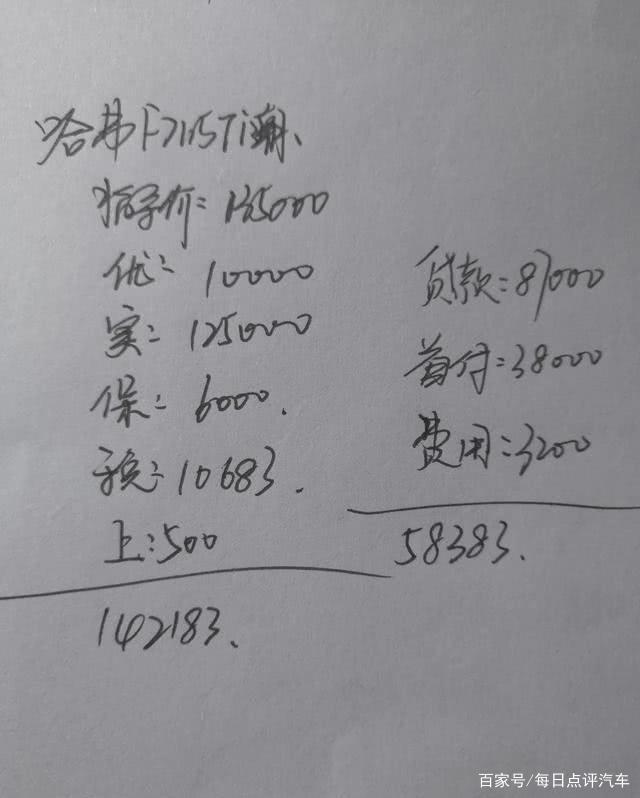 哈弗F7 1.5T i潮
指导价: 135000
优: 10000
实: 125000
保: 6000.
税: 10683.
上: 500
142183.
贷款: 87000
首付: 38000
费用: 3200
58383.
百家号/每日点评汽车